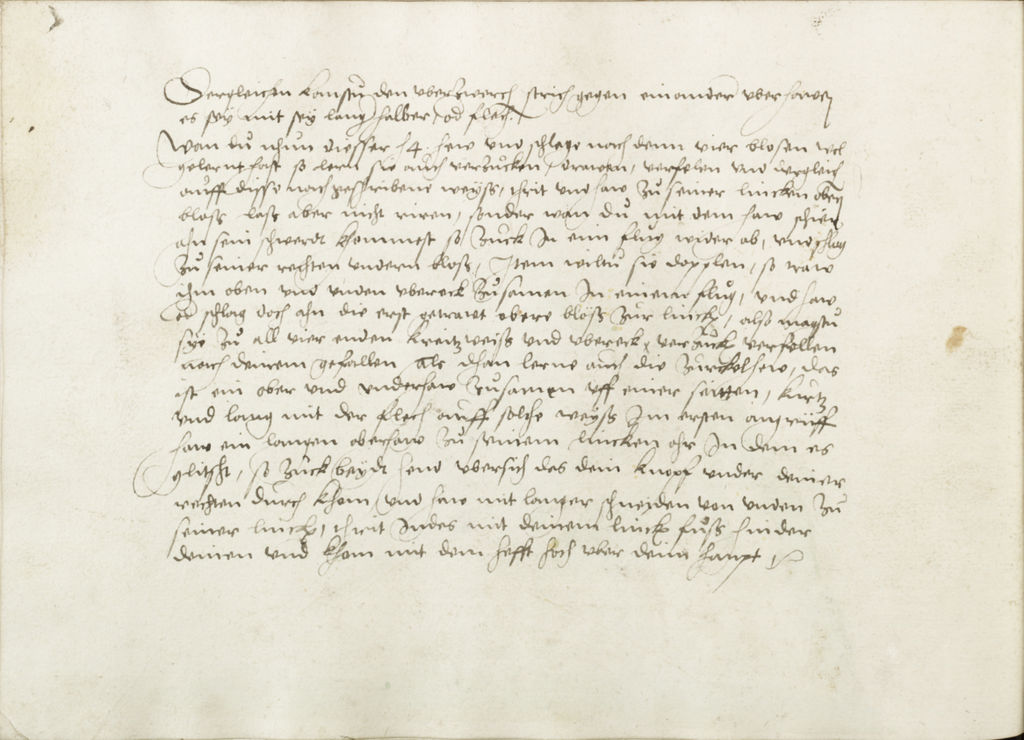 Dergleichen kanstu den vberzwerch strich gegen einander vberhawen
es sey mit sey lang halber od flech.
Wan du nhun diesser 4 hew vnd schlege nach denn vier blosen wol
gelernt hast so lern sie auch verzucken, trawen, verfelen vnd dergleich
auff disse nachgeschribene weyß, thrit vnd haw zu seiner lincken oben
bloß laß aber nicht riren, sonder wan du mit dem haw schier
ahn sein schwerdt khommest so zuck In eim flug wider ab, vnd schlag
zu seiner rechten vndern bloß, Item wiltu sie dopplen, so traw
ihm oben vnd vnden vbereck zusamen In einem flug, vnd haw
od schlag doch ahn die erst getrawt obere blöß zur linck, also magstu
sye zu all vier enden kreitzweiß vnd vbereck verzuck verfellen
nach deinem gefallen Als dhan lerne auch die zirckelhew, das
ist ein ober vnd vnderhaw zusamen vff einer seitten, kurtz
vnd lang mit der flech auff solche weyß Im ersten angriff
haw ein langen oberhaw zu seinem lincken ohr In dem es
glitscht, so zuck beydt hend vbersich das dein knopf vnder deiner
rechten durch khom, vnd haw mit langer schneiden von vnden zu
seiner linck, thrit Indes mit deinem linck fuß hinder
deinen vnd khom mit dem hefft hoch vber deim haupt